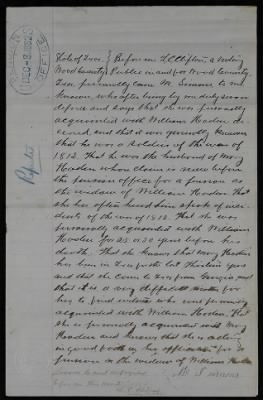 State of Texas } Before me T. C. Clifton, a notary
Wood County } Public in and for Wood County
Texas personally came M. Simons to me
known, who after being by me duly sworn
deposes and says that she was personally
acquainted with William Rooden de
ceased, and that it was generally known
that he was a soldier of the war of
1812. That he was the husband of Mary
Rooden whose claim is now before
the pension office for a pension as
the widow of William Rooden. That
she has often heard him speak of inci
dents of the war of 1812. That she was
personally acquainted with William
Rooden for 25 or 30 years before his
death. That she knows that Mary Rooden
has been in Texas for the last thirteen years
and that she came to Texas from Georgia, and
that it is a very difficult matter for
her to find witnesses who were personally
acquainted with William Rooden. That
she is personally acquainted with Mary
Rooden and knows that she is acting
in good faith in her application for a
pension as the widow of William Rooden
M. Simons
Sworn to and subscribed
before me this